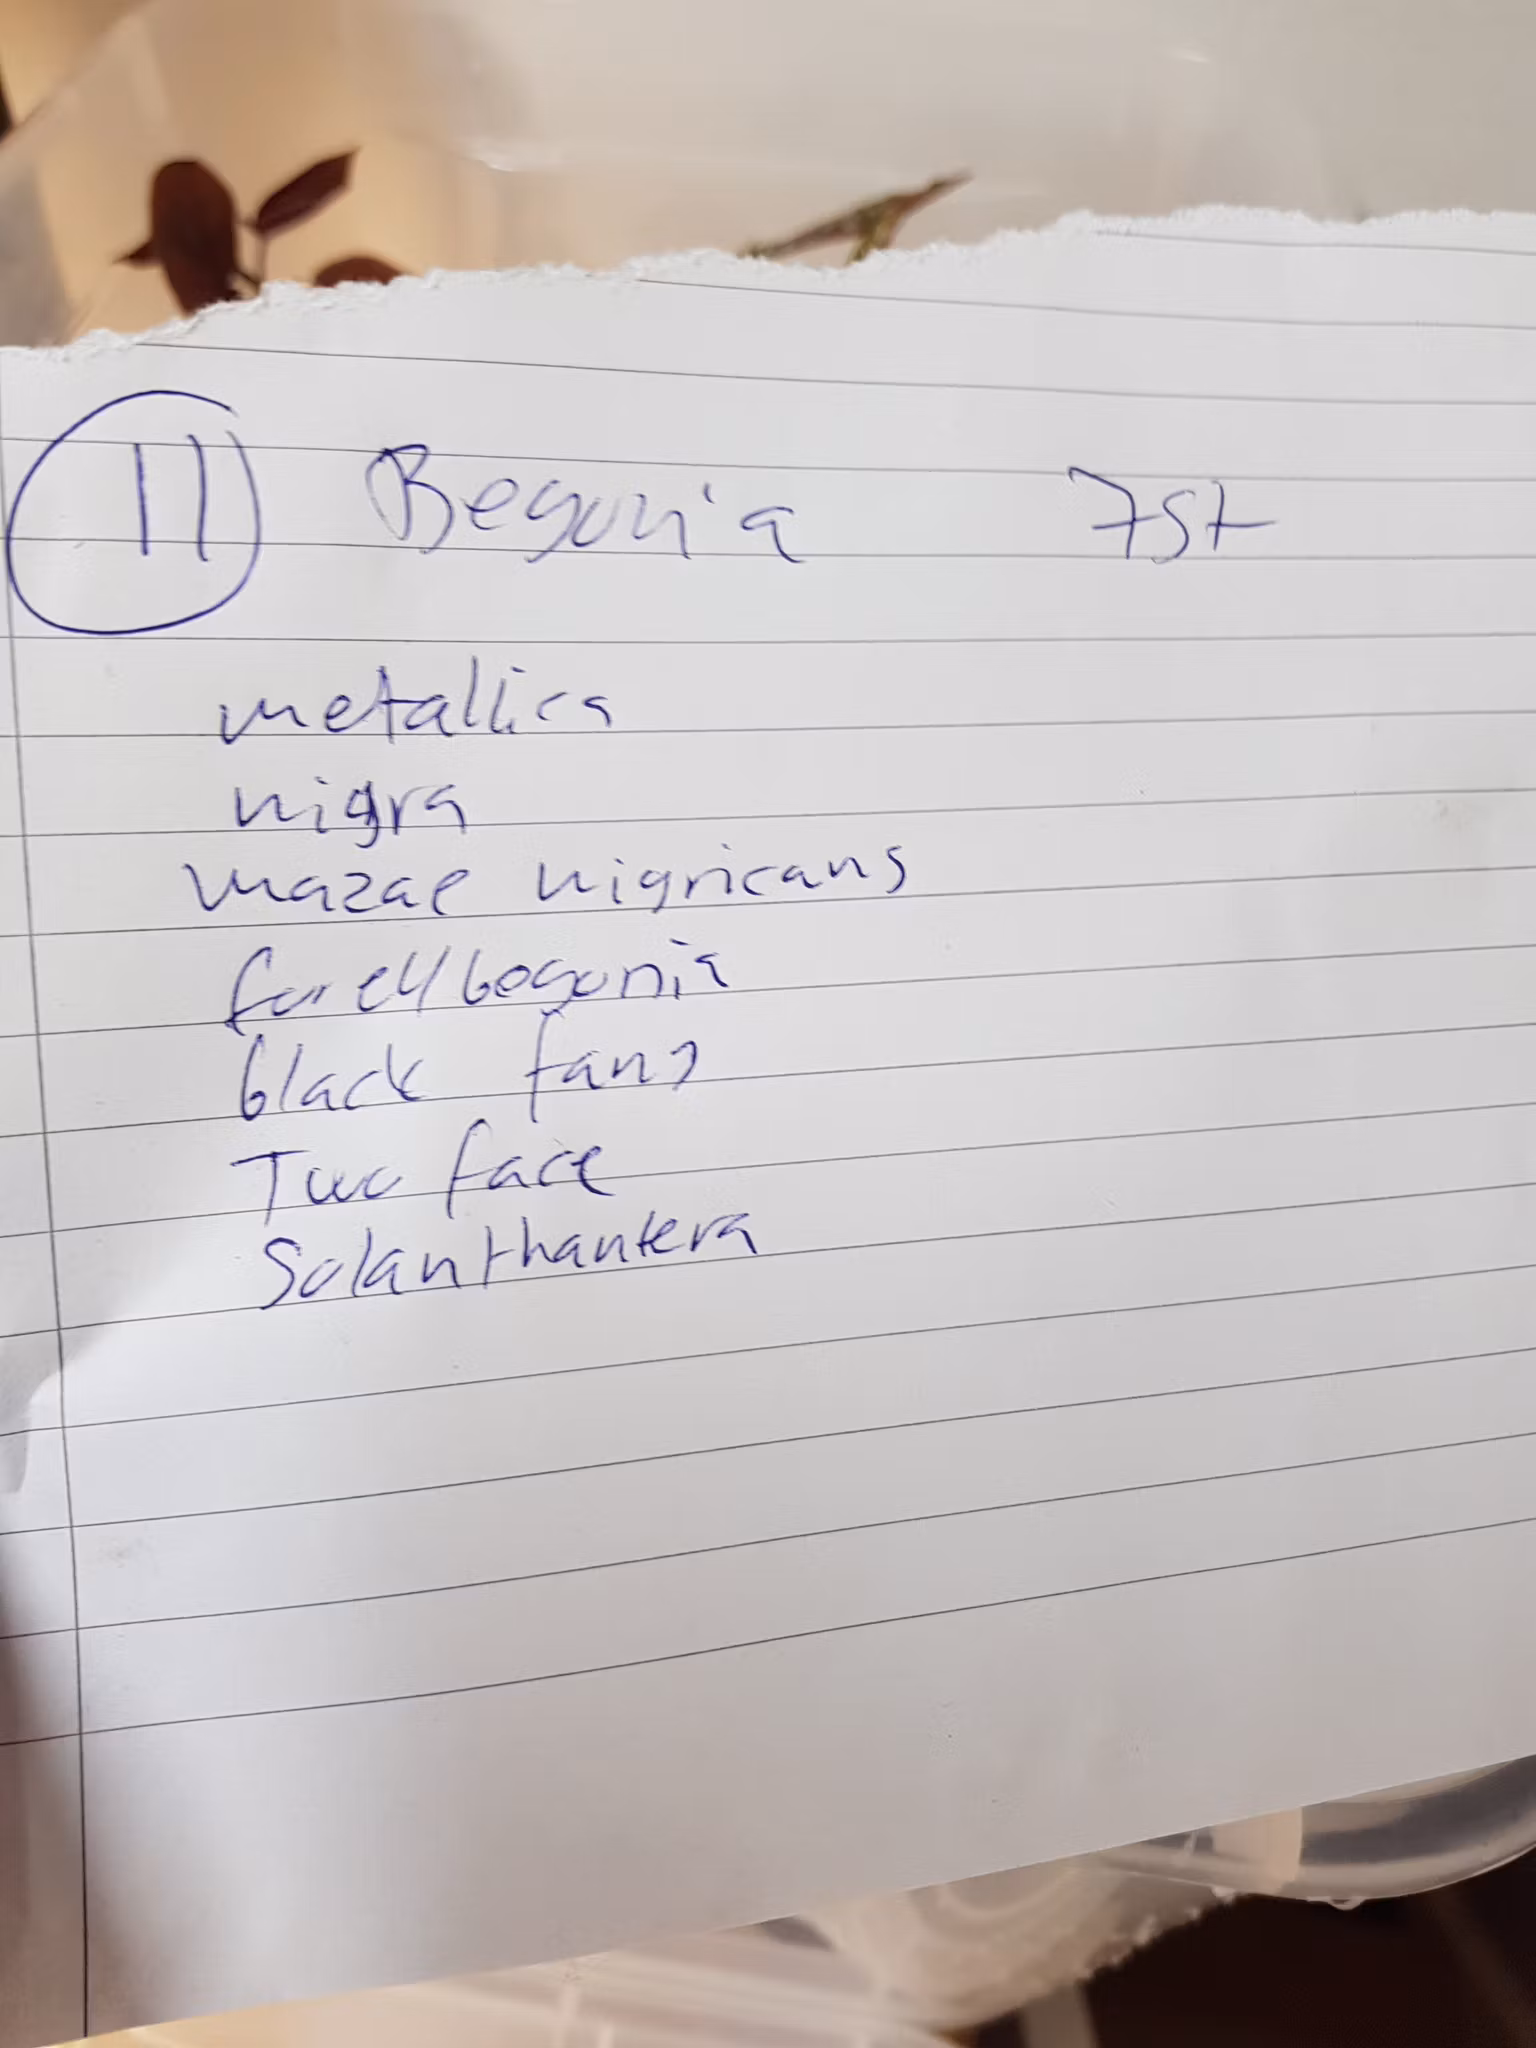 11 Begonia 7st
metallica
nigra
mazae nigricans
forellbegonia
black fans
Two face
Solanthantera